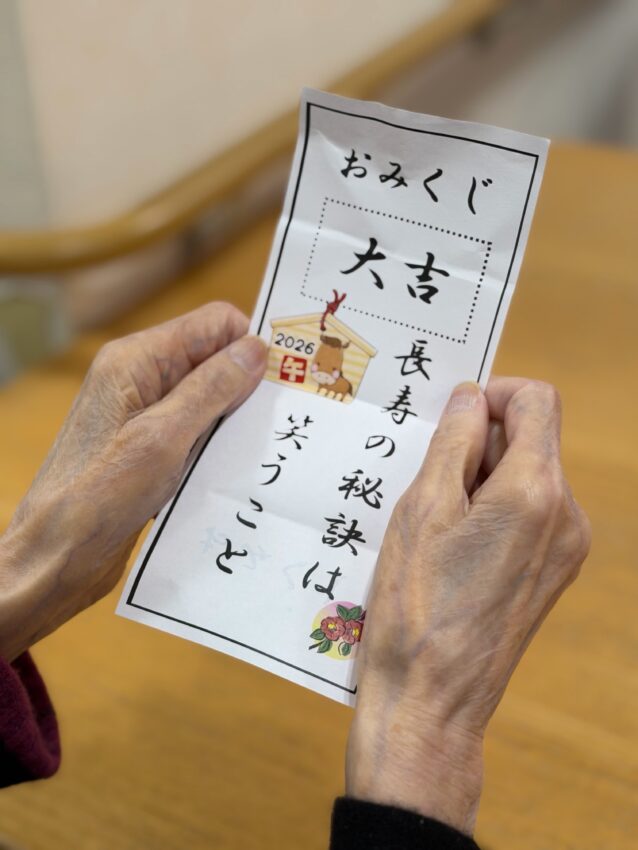 おみくじ
大吉
2026
午
長寿の秘訣は
笑うこと